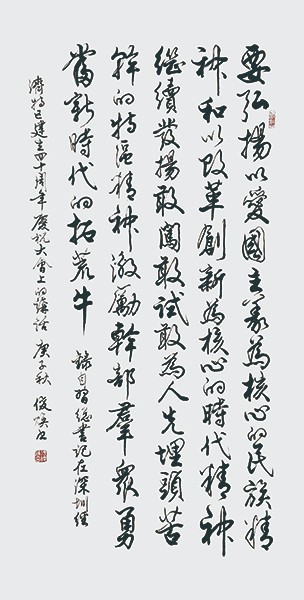 要弘揚以愛國主義為核心的民族精
神和以改革創新為核心的時代精神
繼續發揚敢闖敢試敢為人先埋頭苦
幹的特區精神激勵幹部羣眾勇
當新時代的拓荒牛 錄自習總書記在深圳經
濟特區建立四十周年慶祝大會上的講話 庚子秋 俊 書